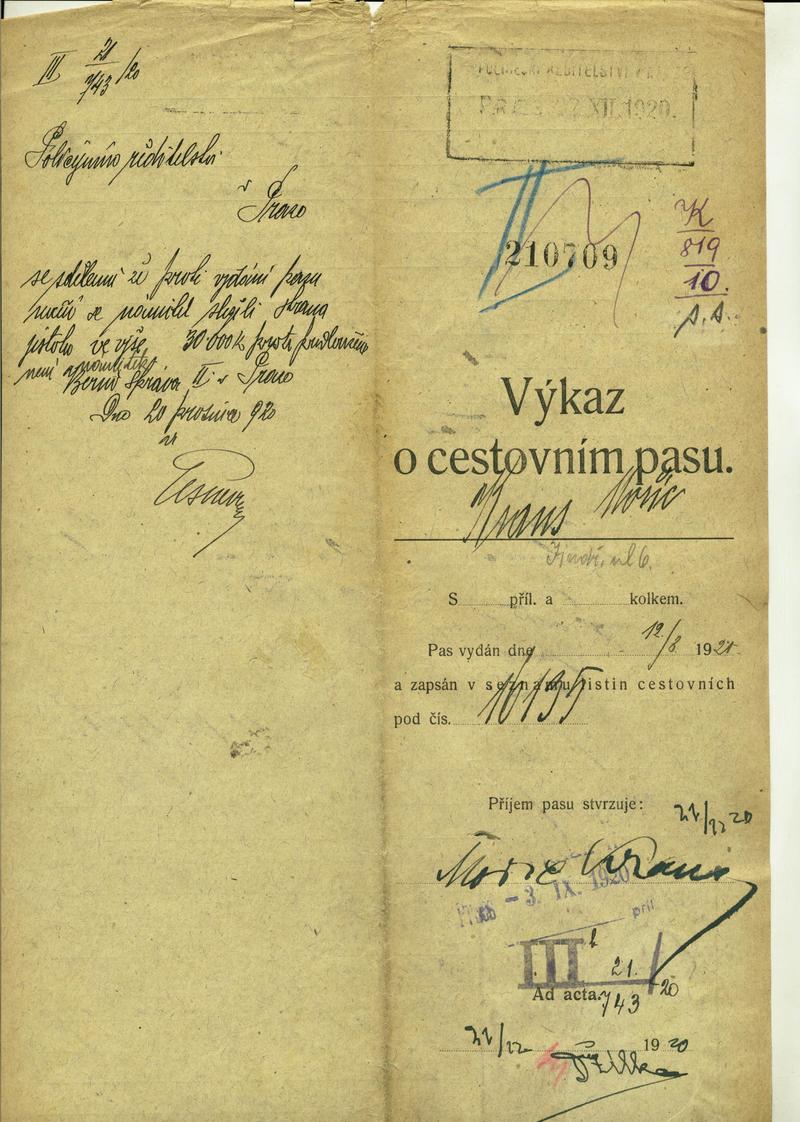 III 21/743/20
Policejnímu ředitelství
v Praze
se sdělení že proti vydání pasu
není se námitek složil Kraus
jistotu ve výše 30.000 K proti
není námitek
Berní Správa II. v Praze
Dne 20 prosince 920
POLICEJNÍ ŘEDITELSTVÍ V PRAZE
XII. 1920.
II
210709
K
819
10.
p. a.
Výkaz
o cestovním pasu.
Kraus Mořic
Jindř. ul 6.
S příl. a kolkem.
Pas vydán dne 12/8 1920
a zapsán v seznamu listin cestovních
pod čís. 16135
Příjem pasu stvrzuje:
22/12 20
Moric Kraus
- 3. IX. 1920
příl
III b 21./743 20
Ad acta.
22/12 1920